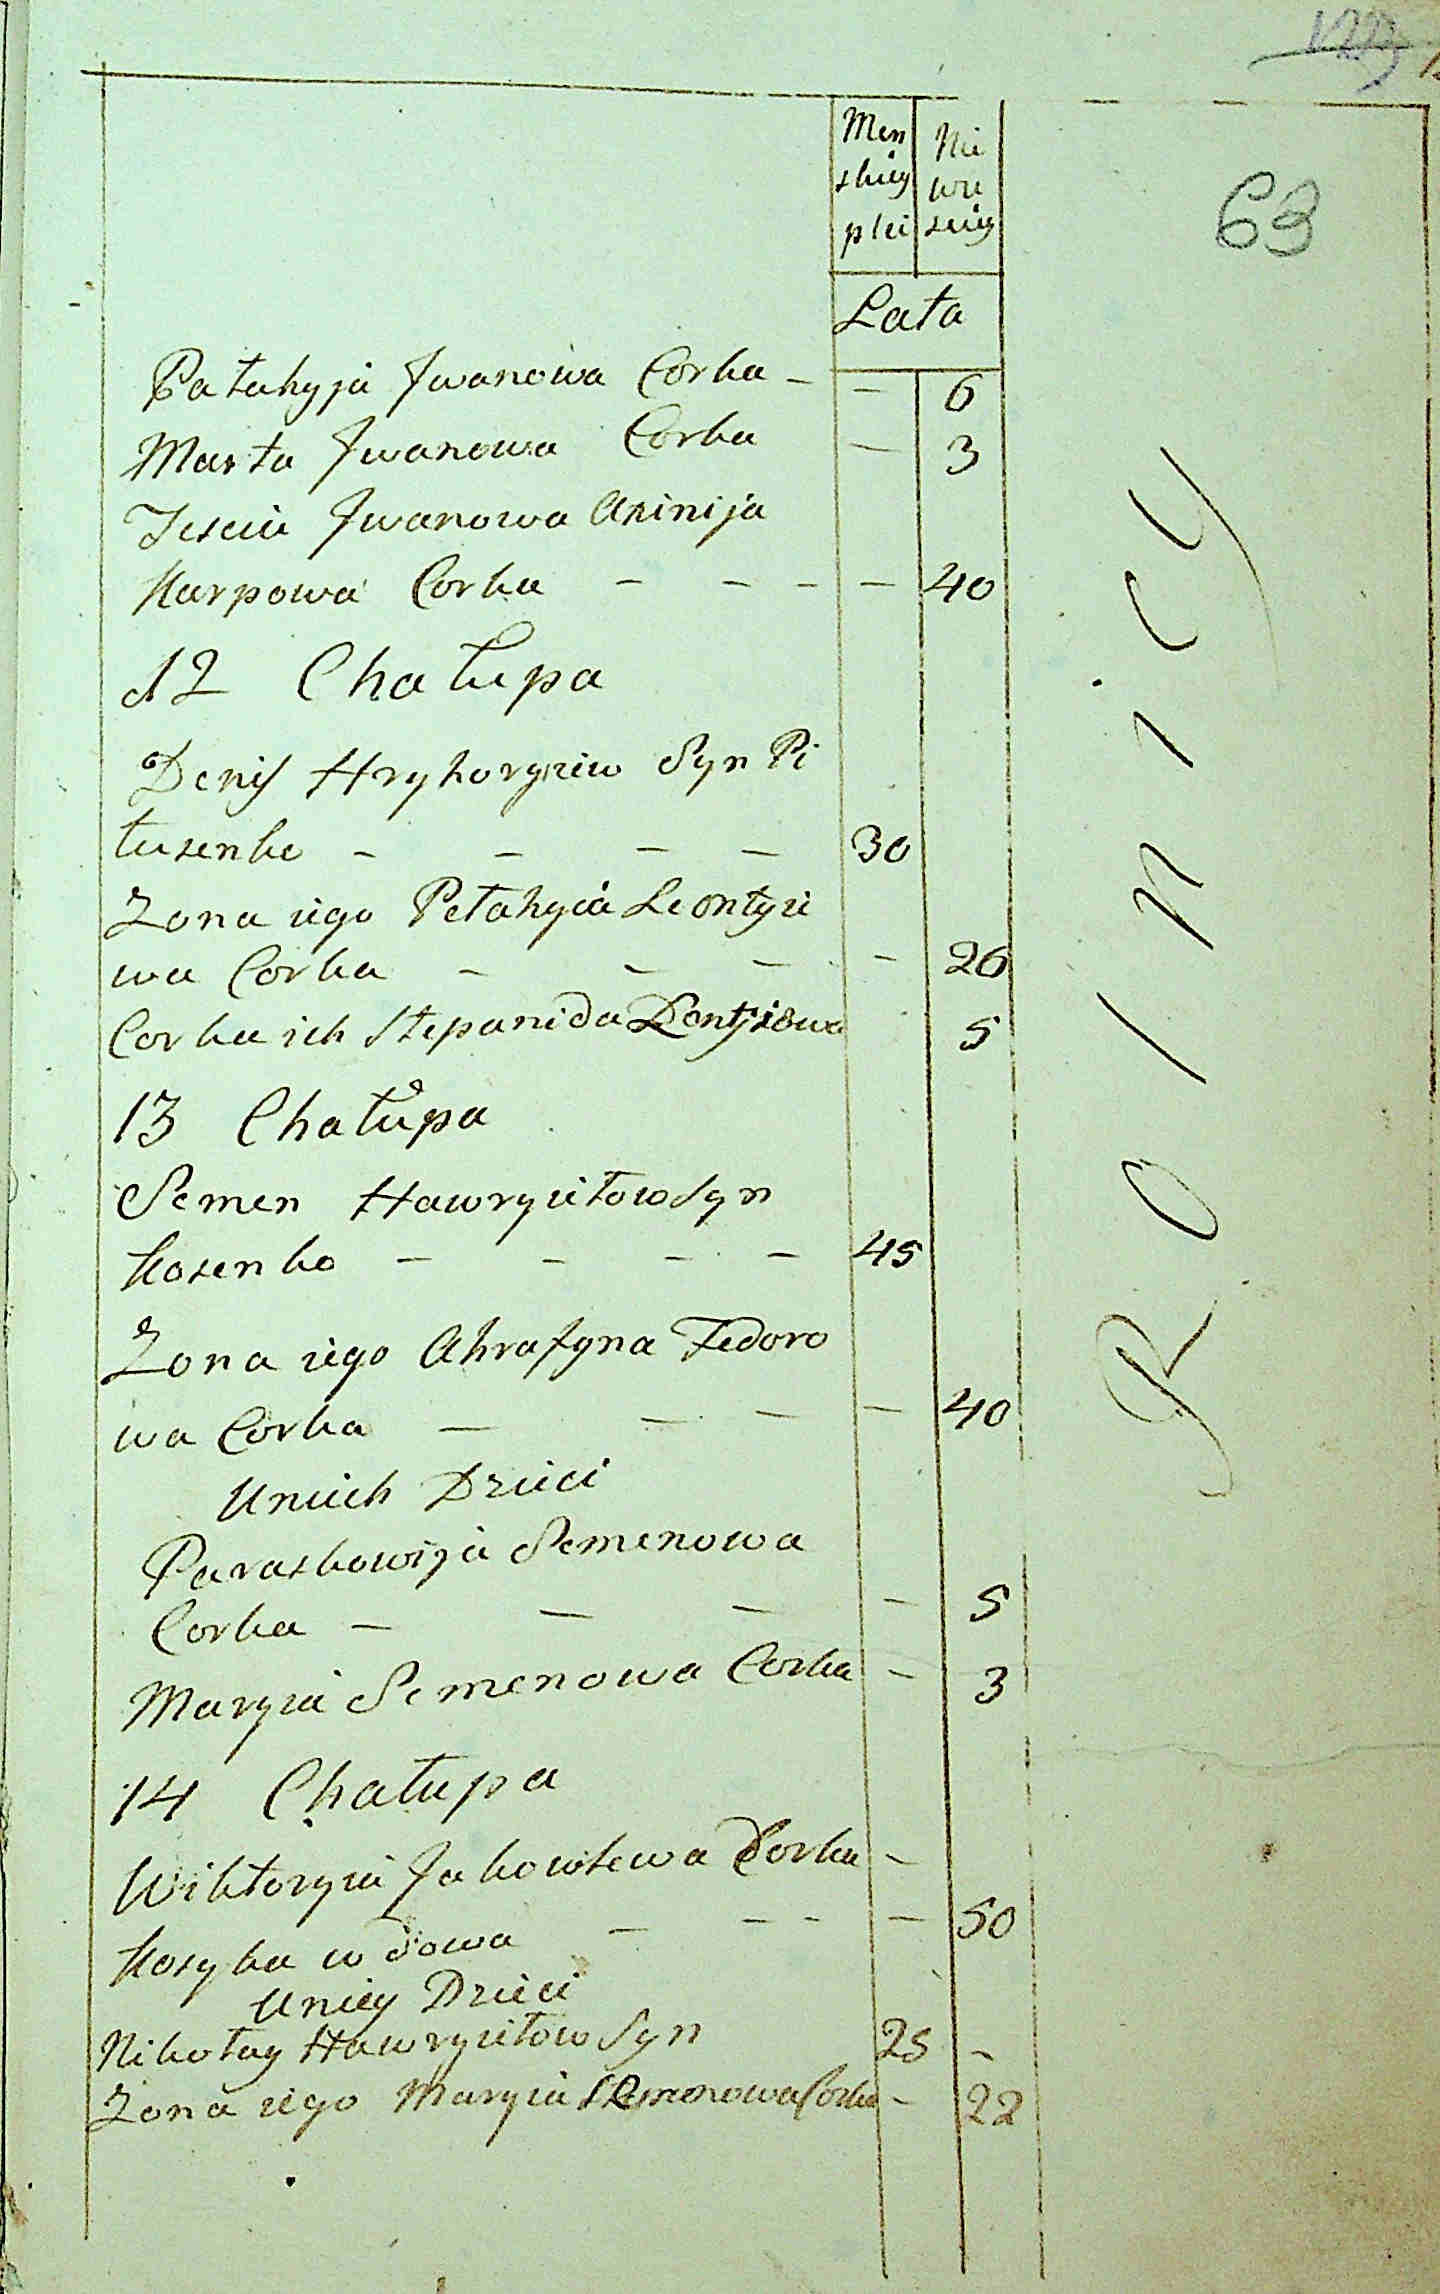 63
Men Nie
skiey wie
płci sciey
Lata
Pałahyja Jwanowa Corka - - 6
Marta Jwanowa Corka - 3
Tescia Jwanowa Axinija
Karpowa Corka - - - - 40
12 Chałupa
Denis Hryhoryiw Syn Pi
łusenko - - - - 30
Zona iego Pełahyia Leontyie
wa Corka - - - - 26
Corka ich Stepanida 5
13 Chałupa
Semen Hawryiłow Syn
Kosenko - - - - 45
Zona iego Ahrafyna Fedoro
wa Corka - - - - 40
U nich Dzieci
Paraskowija Semenowa
Corka - - - - 5
Maryia Semenowa Corka - 3
14 Chałupa
Wiktoryia Jakowlewa Corka -
Kosyka wdowa - - - - 50
U niey Dzieci
Nikołay Hawryiłow Syn 25 -
Zona iego Maryia Semenowa Corka - 22
ROLNICY